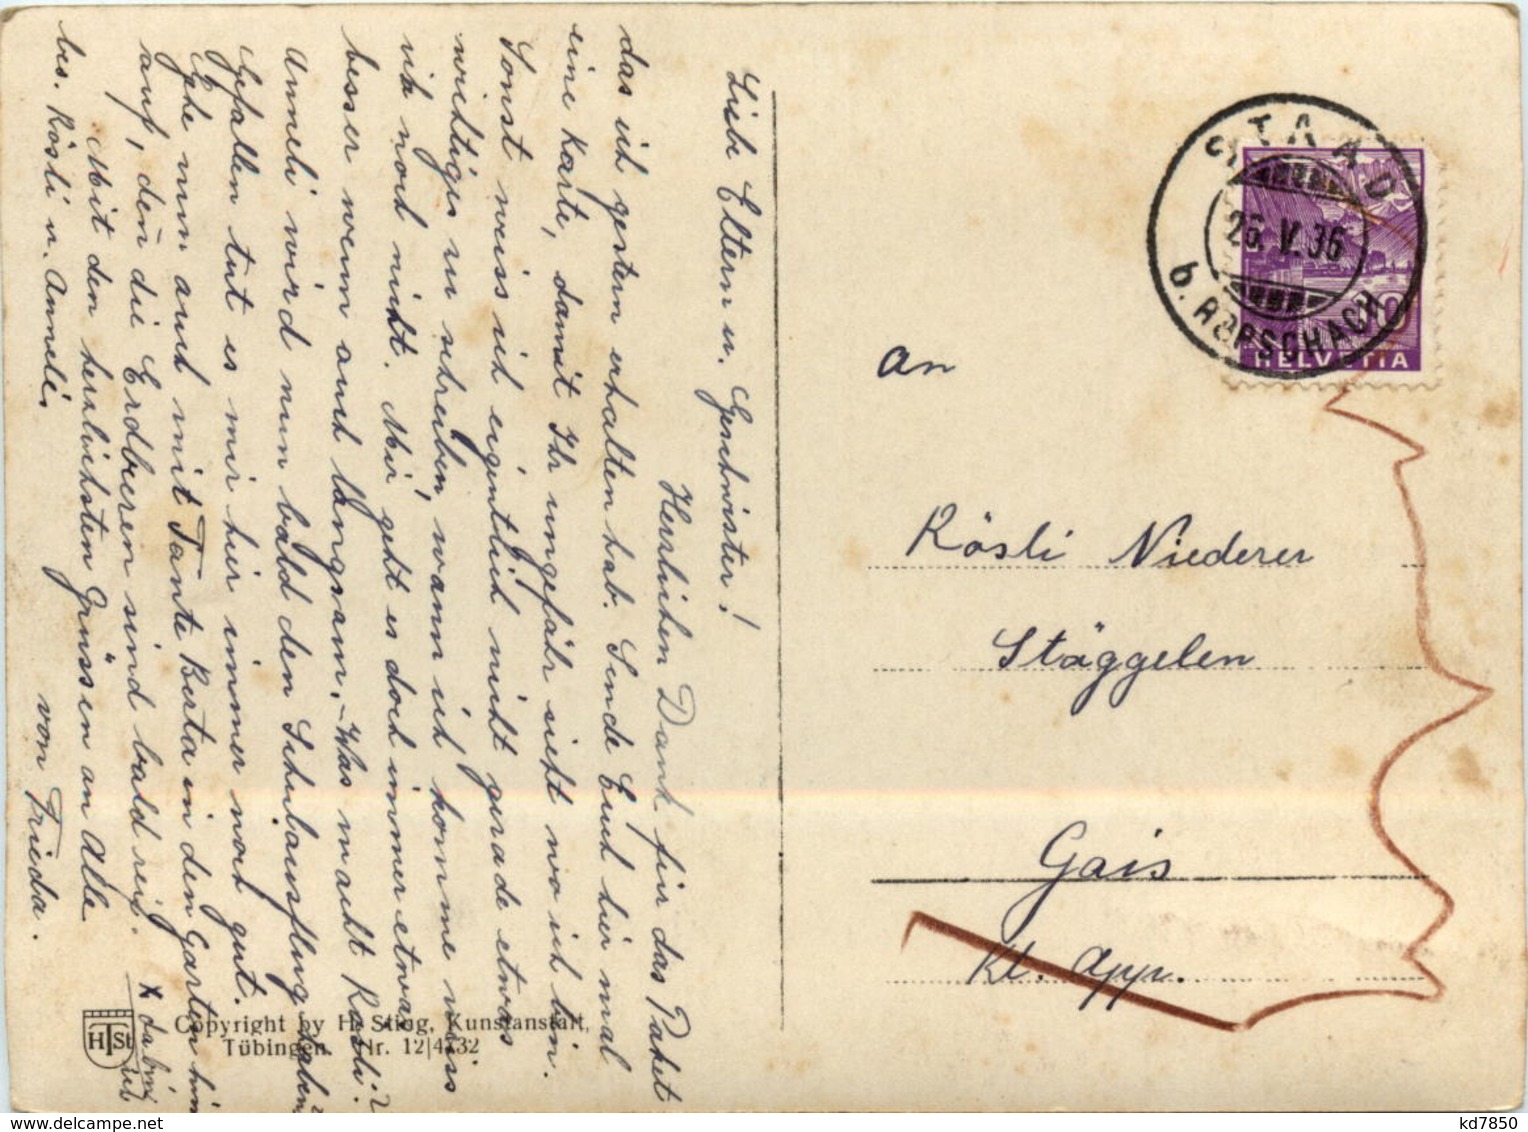 Liebe Eltern u. Geschwister!
Herzlichen Dank für das Paket
das ich gestern erhalten hab. Sende Euch hier mal
eine Karte, damit Ihr ungefähr sieht wo ich bin.
Sonst weiss ich eigentlich nicht gerade etwas
wichtiges zu schreiben, wann ich komme weiss
ich noch nicht. Mir geht es doch immer etwas
besser wenn auch langsam. - Was macht Rösli?
Anneli wird nun bald den Schulausflug haben?
Gefallen tut es mir hier immer noch gut.
Gehe nun auch mit Tante Berta in den Garten hin
auf, den die Erdberen sind bald reif.
x dabin
ich
Mit den herzlichsten Grüssen an Alle
bes. Rösli u. Anneli.
von Frieda.
HTSt
Copyright by H. Sting, Kunstanstalt,
Tübingen. Nr. 12|4132
STAAD
26. V. 36
b. RORSCHACH
10
HELVETIA
An
Rösli Niederer
Stäggelen
Gais
Kt. App.
kd7850